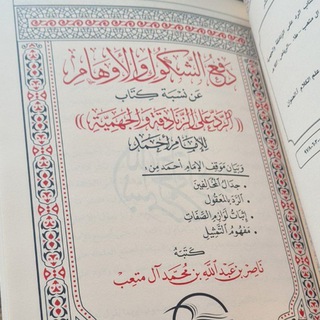 دفع الشكوك والأوهام
عن نسبة كتاب
((الرد على الزنادقة والجهمية))
للإمام أحمد
وبيان موقف الإمام أحمد من:
• جدال المخالفين
• الرد بالمعقول
• إثبات لوازم الصفات
• مفهوم التمثيل
كتبه
ناصر بن عبد الله بن محمد آل متعب